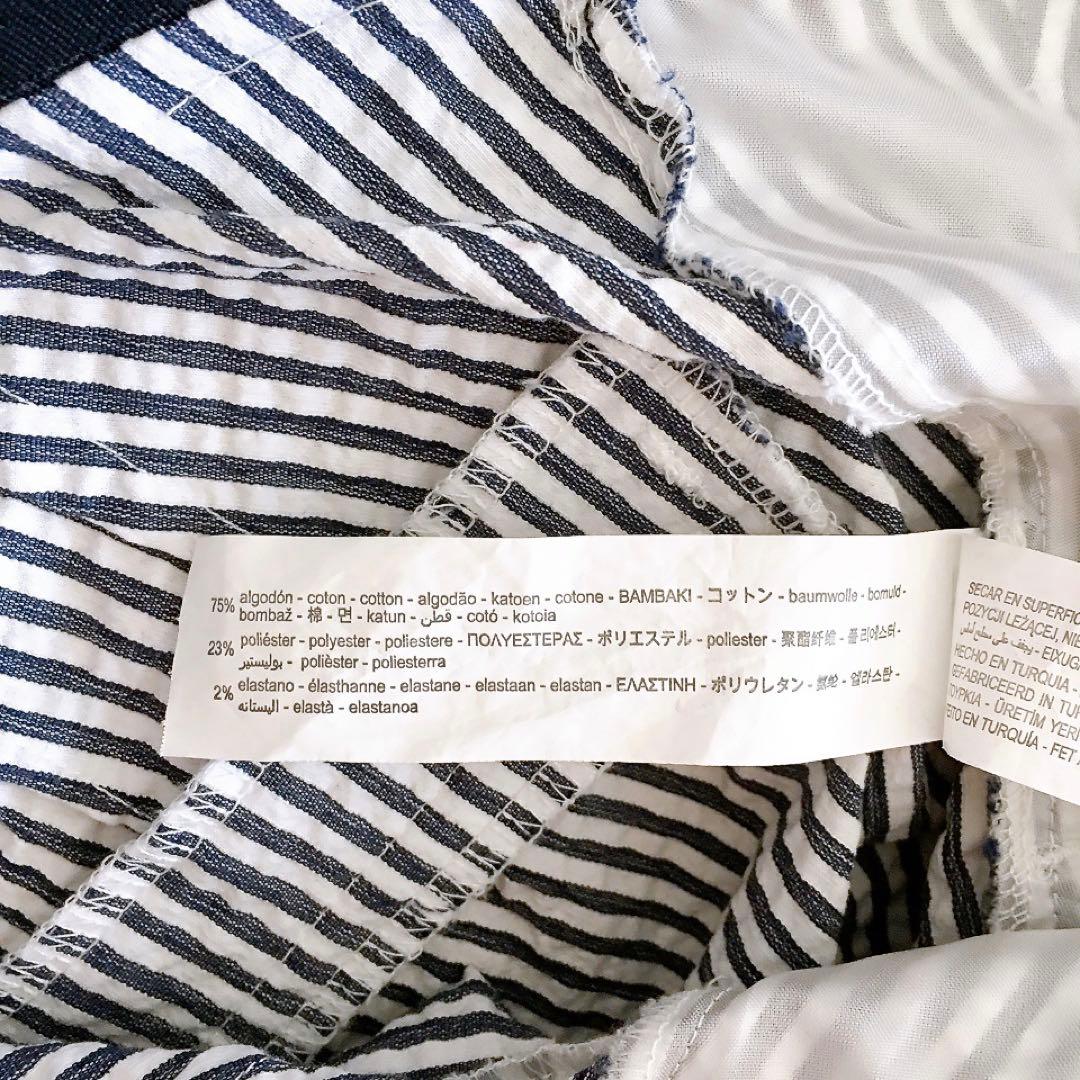 75% algodón - coton - cotton - algodão - katoen - cotone - BAMBAKI - コットン - baumwolle - bomuld -
bombaž - 棉 - 면 - katun - قطن - cotó - kotoia
23% poliéster - polyester - poliestere - ΠΟΛΥΕΣΤΕΡΑΣ - ポリエステル - poliester - 聚酯纤维 - 폴리에스터 -
بوليستير - polièster - poliesterra
2% elastano - élasthanne - elastane - elastaan - elastan - ΕΛΑΣΤΙΝΗ - ポリウレタン - 氨纶 - 엘라스탄 -
اليستانه - elastà - elastanoa
SECAR EN SUPERFIC
POZYCJI LEŻĄCEJ, NIE
يجفف على سطح أملس - EIXUG
HECHO EN TURQUIA -
GEFABRICEERD IN TUR
ΤΟΥΡΚΙΑ - ÜRETİM YERİ
FEITO EN TURQUÍA - FET A